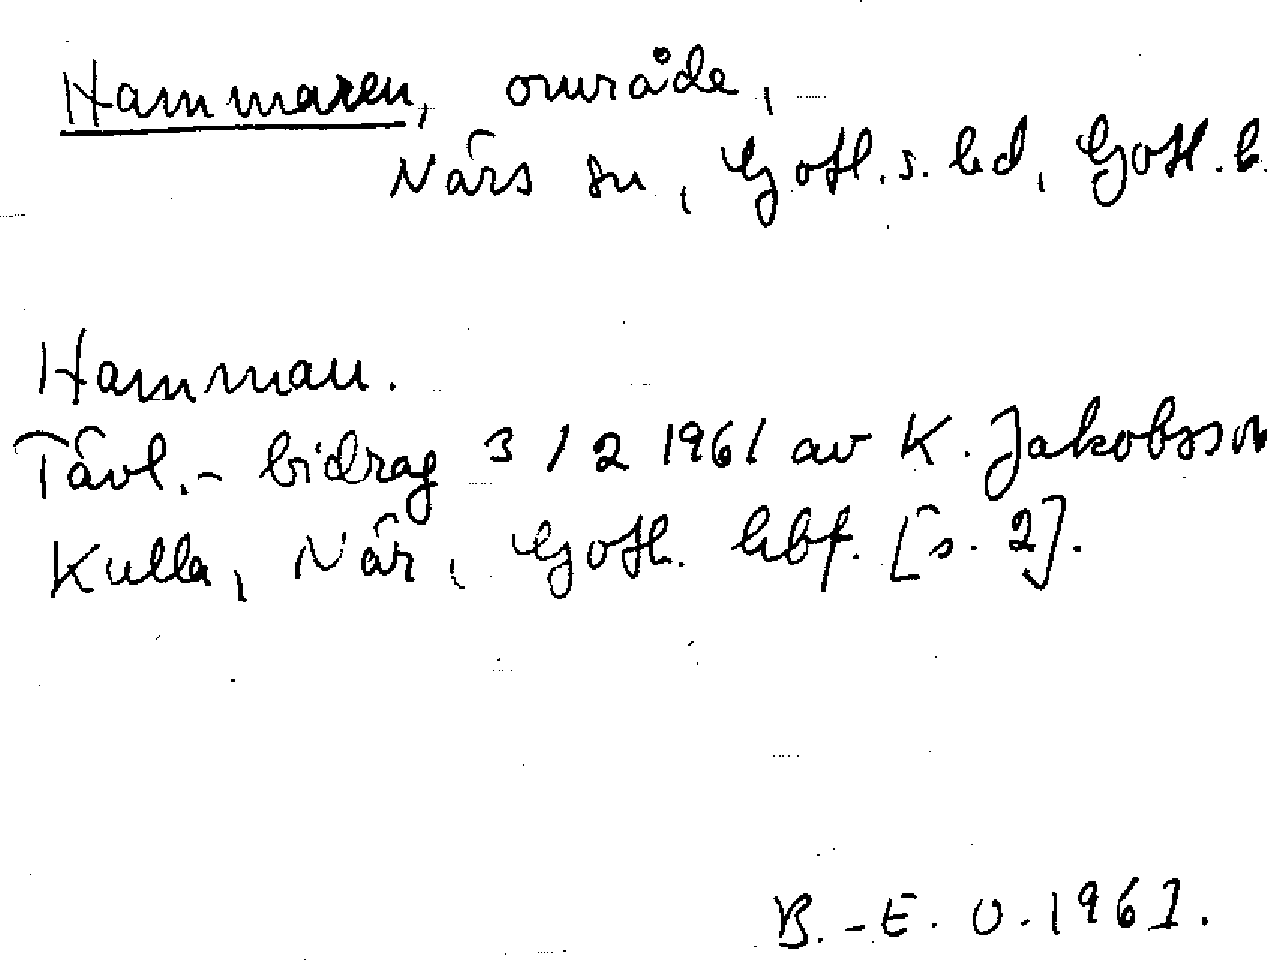 Hammaren, område,
Närs sn, Gotl. s. hd, Gotl. l.
Hamman.
Tävl.- bidrag 3/2 1961 av K. Jakobsson
Kulla, När, Gotl. hbf. [s. 2].
B.-E. O. 1961.